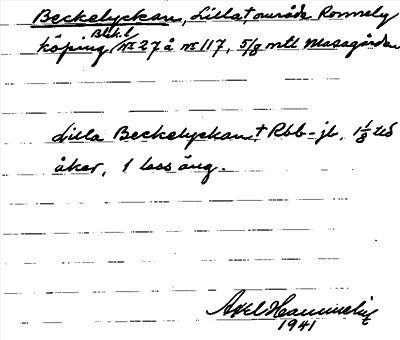 Beckelyckan, Lilla†, område Ronneby
köping Blek. l. nr 27 å nr 117, 5/8 mtl Masagården
Lilla Beckelyckan † Rbb-jb, 1 1/8 tld
åker, 1 lass äng.
Axel
1941